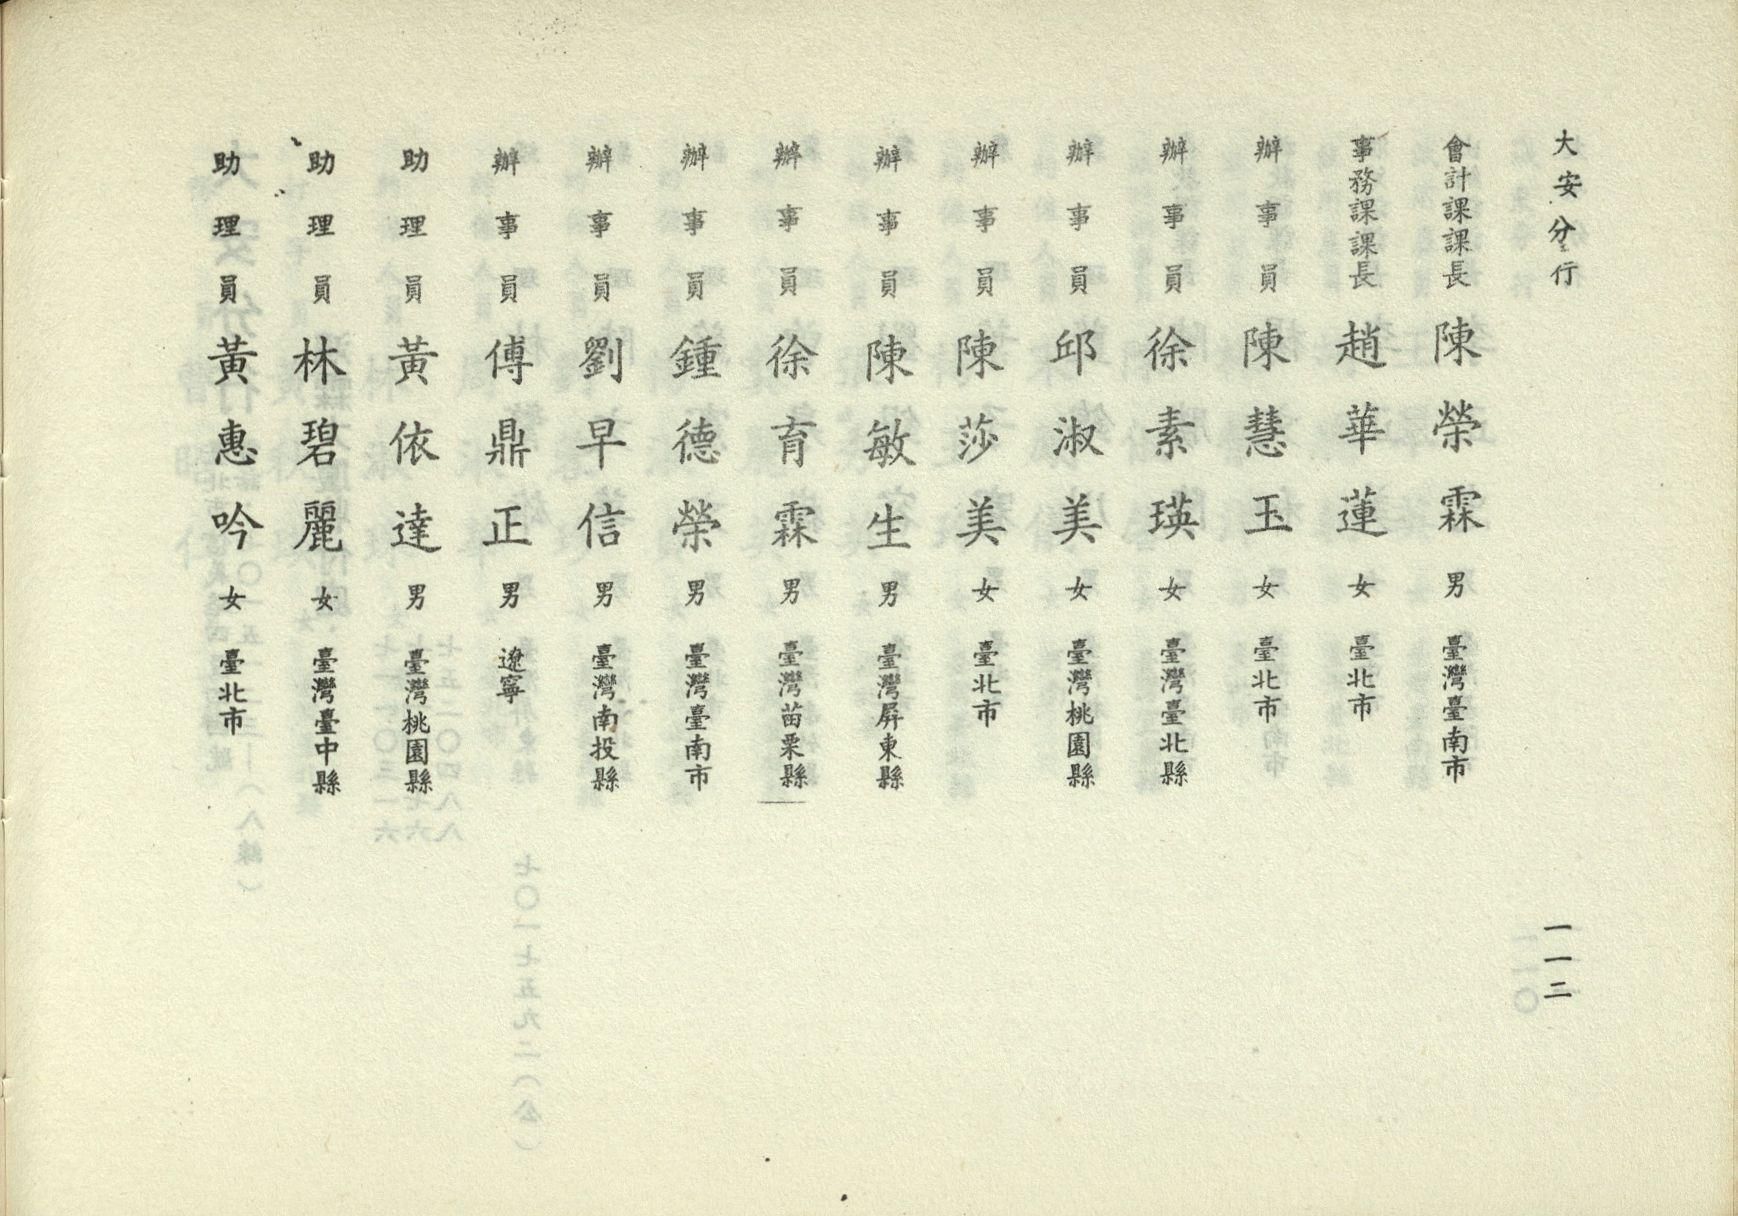 大安分行
會計課課長 陳榮霖 男 臺灣臺南市
事務課課長 趙華蓮 女 臺北市
辦事員 陳慧玉 女 臺北市
辦事員 徐素瑛 女 臺灣臺北縣
辦事員 邱淑美 女 臺灣桃園縣
辦事員 陳莎美 女 臺北市
辦事員 陳敏生 男 臺灣屏東縣
辦事員 徐育霖 男 臺灣苗栗縣
辦事員 鍾德榮 男 臺灣臺南市
辦事員 劉早信 男 臺灣南投縣
辦事員 傅鼎正 男 遼寧
助理員 黃依達 男 臺灣桃園縣
助理員 林碧麗 女 臺灣臺中縣
助理員 黃惠吟 女 臺北市
一一二